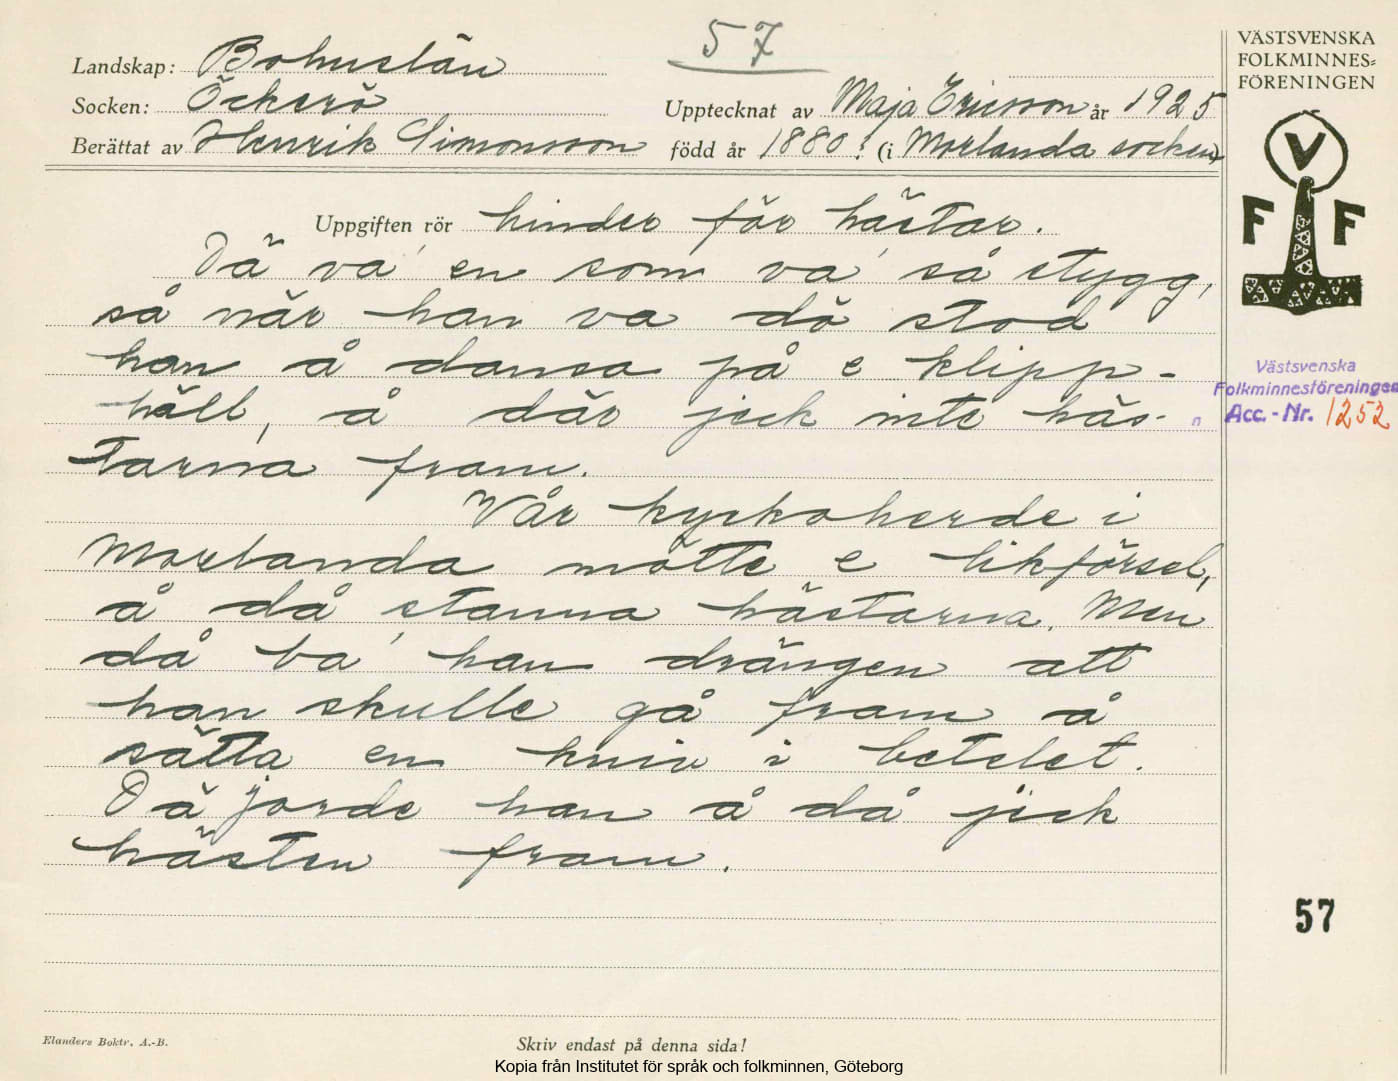 57
Landskap: Bohuslän
Socken: Öckerö
Upptecknat av Maja Ericsson år 1925
Berättat av Henrik Simonsson född år 1880. (i Morlanda socken)
Uppgiften rör hinder för hästar.
Dä va' en som va' så stygg,
så när han va dö stod
han å dansa på e klipp-
häll, å där jick inte häs-
tarna fram.
Vår kyrkoherde i
Morlanda mötte e likförsel,
å då stanna hästarna. Men
då ba' han drängen att
han skulle gå fram å
sätta en kniv i betelet.
Dä jorde han å då jick
hästen fram.
Elanders Boktr. A.-B.
Skriv endast på denna sida!
Kopia från Institutet för språk och folkminnen, Göteborg
VÄSTSVENSKA
FOLKMINNES-
FÖRENINGEN
V
F F
Västsvenska
Folkminnesföreningen
Acc.-Nr. 1252
57